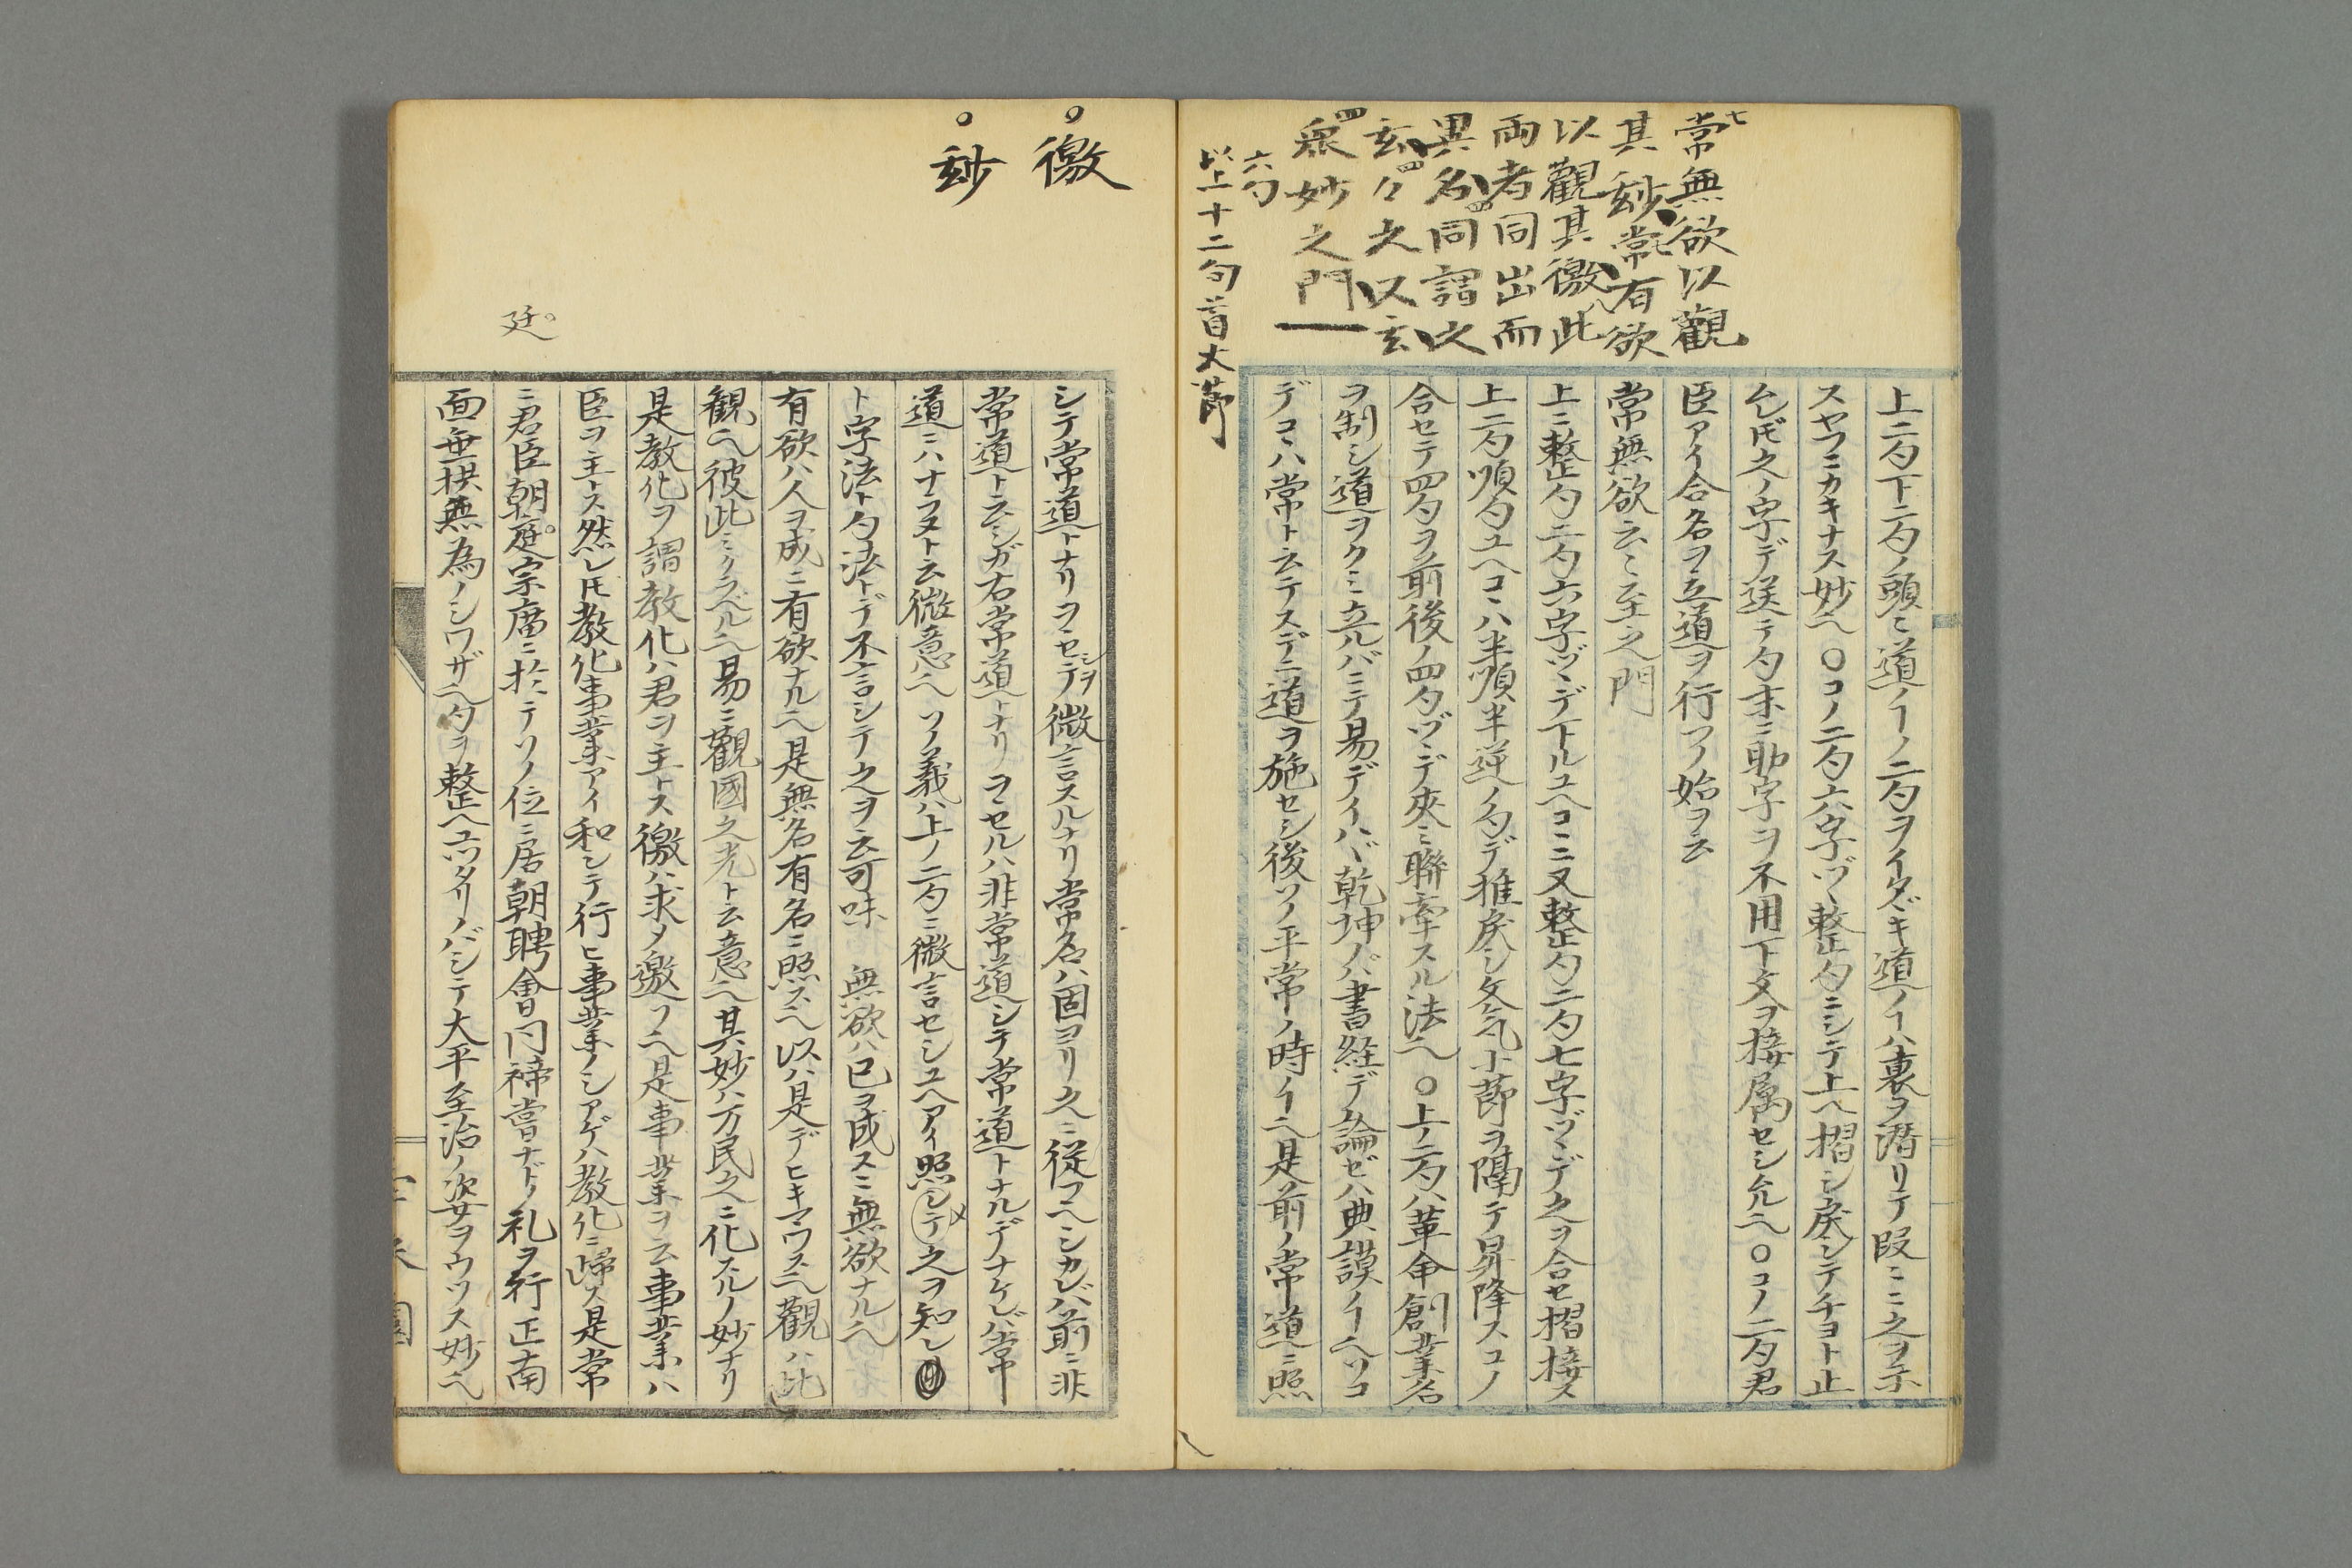 常無欲以觀
其玅常有欲
以觀其徼此
兩者同出而
異名同謂之
玄々之又玄
衆妙之門
六句
以上十二句首大節
上二句下二句ノ頭ニ道ノ二句ヲイタヾキ道ハ裏ヲ潛リテ段ニ之ヲ示
スヤフニカキナス妙也〇コノ二句六字ヅヽ整句ニシテ上ヘ摺シ戻シテチヨト止
之ノ字デ送テ句末ニ助字ヲ不用下文ヲ接属セシ也〇コノ二句君
臣アイ合名ヲ立道ヲ行フノ始ヲ云
常無欲云々至之門
上ニ整句二句六字ヅヽデ下ルユヘコヽニ又整句二句七字ヅヽデ之ヲ合セ摺接ス
上二句順句ユヘコヽハ半順半逆ノ句デ推戻シ文気小節ヲ隔テ昇降スコノ
合セテ四句ヲ前後ノ四句ヅヽデ夾ミ聯牽スル法也〇上ノ二句ハ革命創業名
ヲ制シ道ヲクミ立ルバニテ易デイハヾ乾坤ノバ書経デ論ゼハ典謨ノ也ソコ
デコヽハ常ト云テスデニ道ヲ施セシ後ソノ平常ノ時也是前ノ常道ニ照
徼
玅
廷
シテ常道トナリヲヽセテ微言スルナリ常名ハ固ヨリ之ニ従フヘシカレバ前ニ非
常道ト云シガ右常道トナリヲヽセルハ非常道シテ常道トナルデナケレバ常
道ニハナラヌト云微意也ソノ義ハ上ノ二句ニ微言セシユヘアイ照シテ之ヲ知レ
ト字法ト句法トデ不言シテ之ヲ云可味　無欲ハ己ヲ成スニ無欲ナル也
有欲ハ人ヲ成ニ有欲ナル也是無名有名ニ照ス也以ハ是デヒキマワス也觀ハ此
観也彼此ミクラベル也易ニ觀國之光ト云意也其妙ハ万民之ニ化スルノ妙ナリ
是教化ヲ謂教化ハ君ヲ主トス徼ハ求メ邀フ也是事業ヲ云事業ハ
臣ヲ主トス然レ𪜈教化事業アイ和シテ行ヒ事業ノシアゲハ教化ニ帰ス是常
ニ君臣朝庭宗庿ニ於テソノ位ニ居朝聘會同禘嘗ナドノ礼ヲ行正南
面垂拱無為ノシワザ也句ヲ整ヘユツタリノバシテ大平至治ノ姿ヲウツス妙也